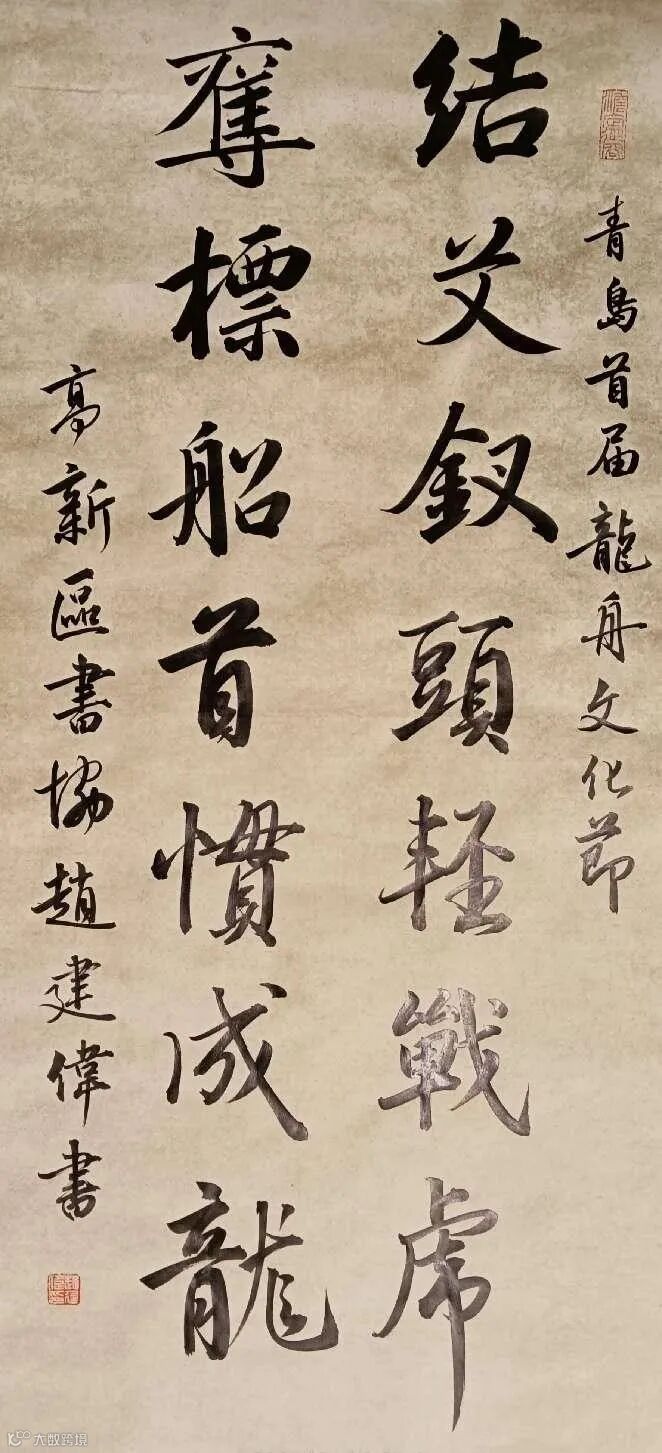 青島首届龍舟文化節
結艾釵頭輕戰虎
奪標船首慣成龍
高新區書協趙建偉書
大数跨境